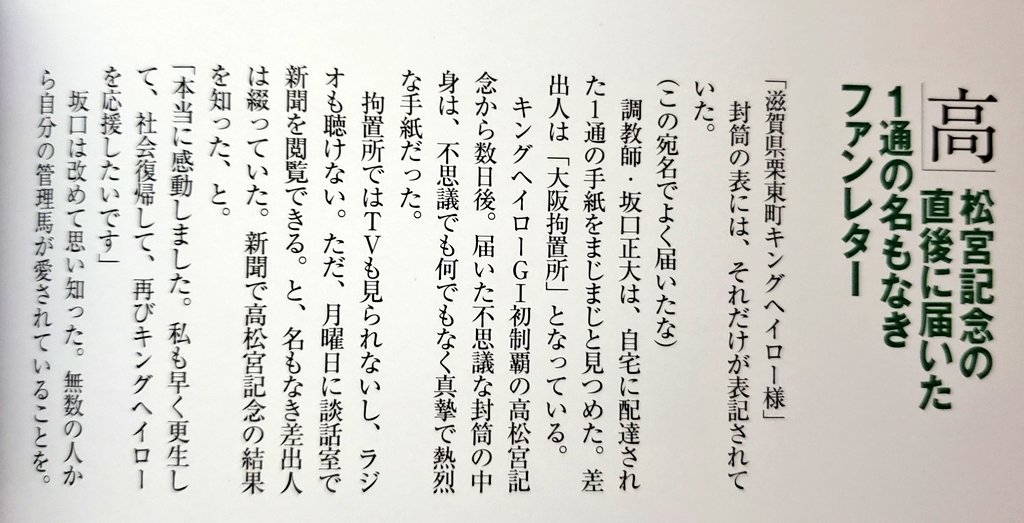 高松宮記念の
直後に届いた
1通の名もなき
ファンレター
「滋賀県栗東町キングヘイロー様」
封筒の表には、それだけが表記されて
いた。
(この宛名でよく届いたな)
調教師・坂口正大は、自宅に配達され
た1通の手紙をまじまじと見つめた。差
出人は「大阪拘置所」となっている。
キングヘイローGI初制覇の高松宮記
念から数日後。届いた不思議な封筒の中
身は、不思議でも何でもなく真摯で熱烈
な手紙だった。
拘置所ではTVも見られないし、ラジ
オも聴けない。ただ、月曜日に談話室で
新聞を閲覧できる。と、名もなき差出人
は綴っていた。新聞で高松宮記念の結果
を知った、と。
「本当に感動しました。私も早く更生し
て、社会復帰して、再びキングヘイロー
を応援したいです」
坂口は改めて思い知った。無数の人か
ら自分の管理馬が愛されていることを。